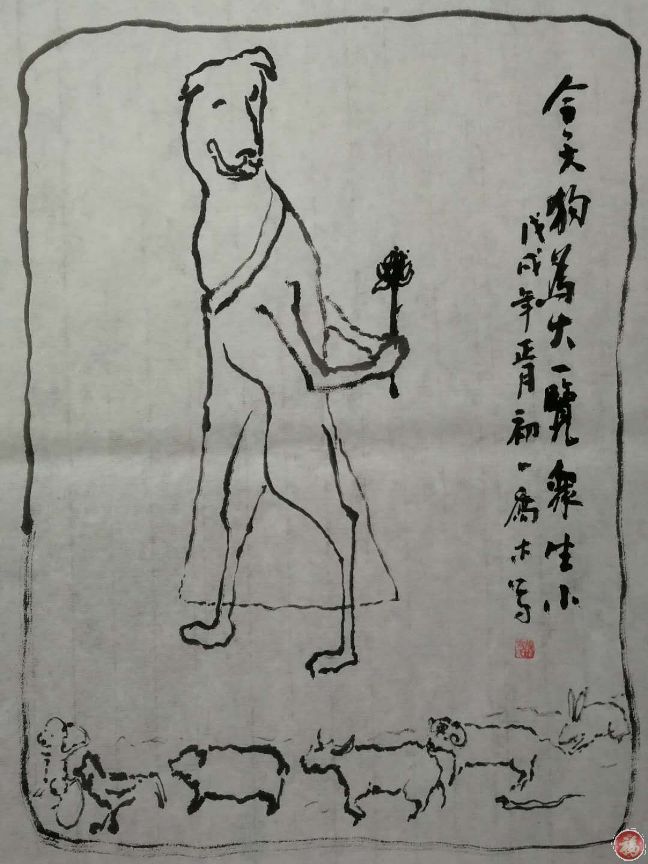 今天狗為大一覽衆生小
戊戌年正月初一喬木写
福